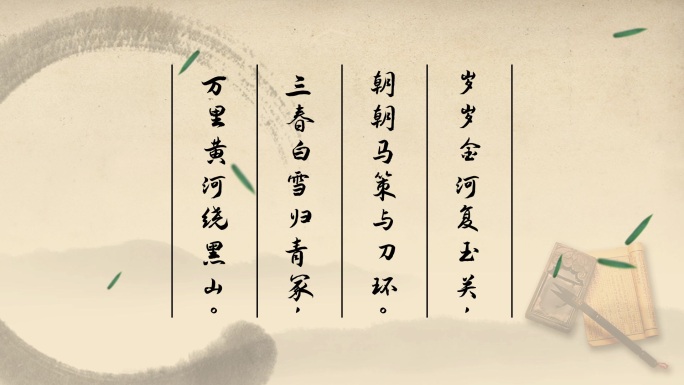 岁岁金河复玉关，
朝朝马策与刀环。
三春白雪归青冢，
万里黄河绕黑山。